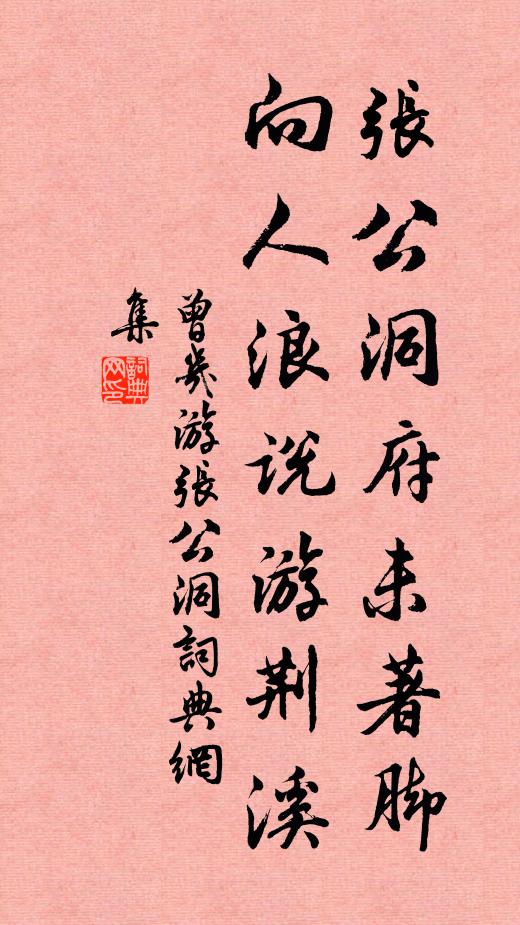 張公洞府未著脚
向人浪说游荆溪
曾幾游張公洞詞典網
集
詞典
网印